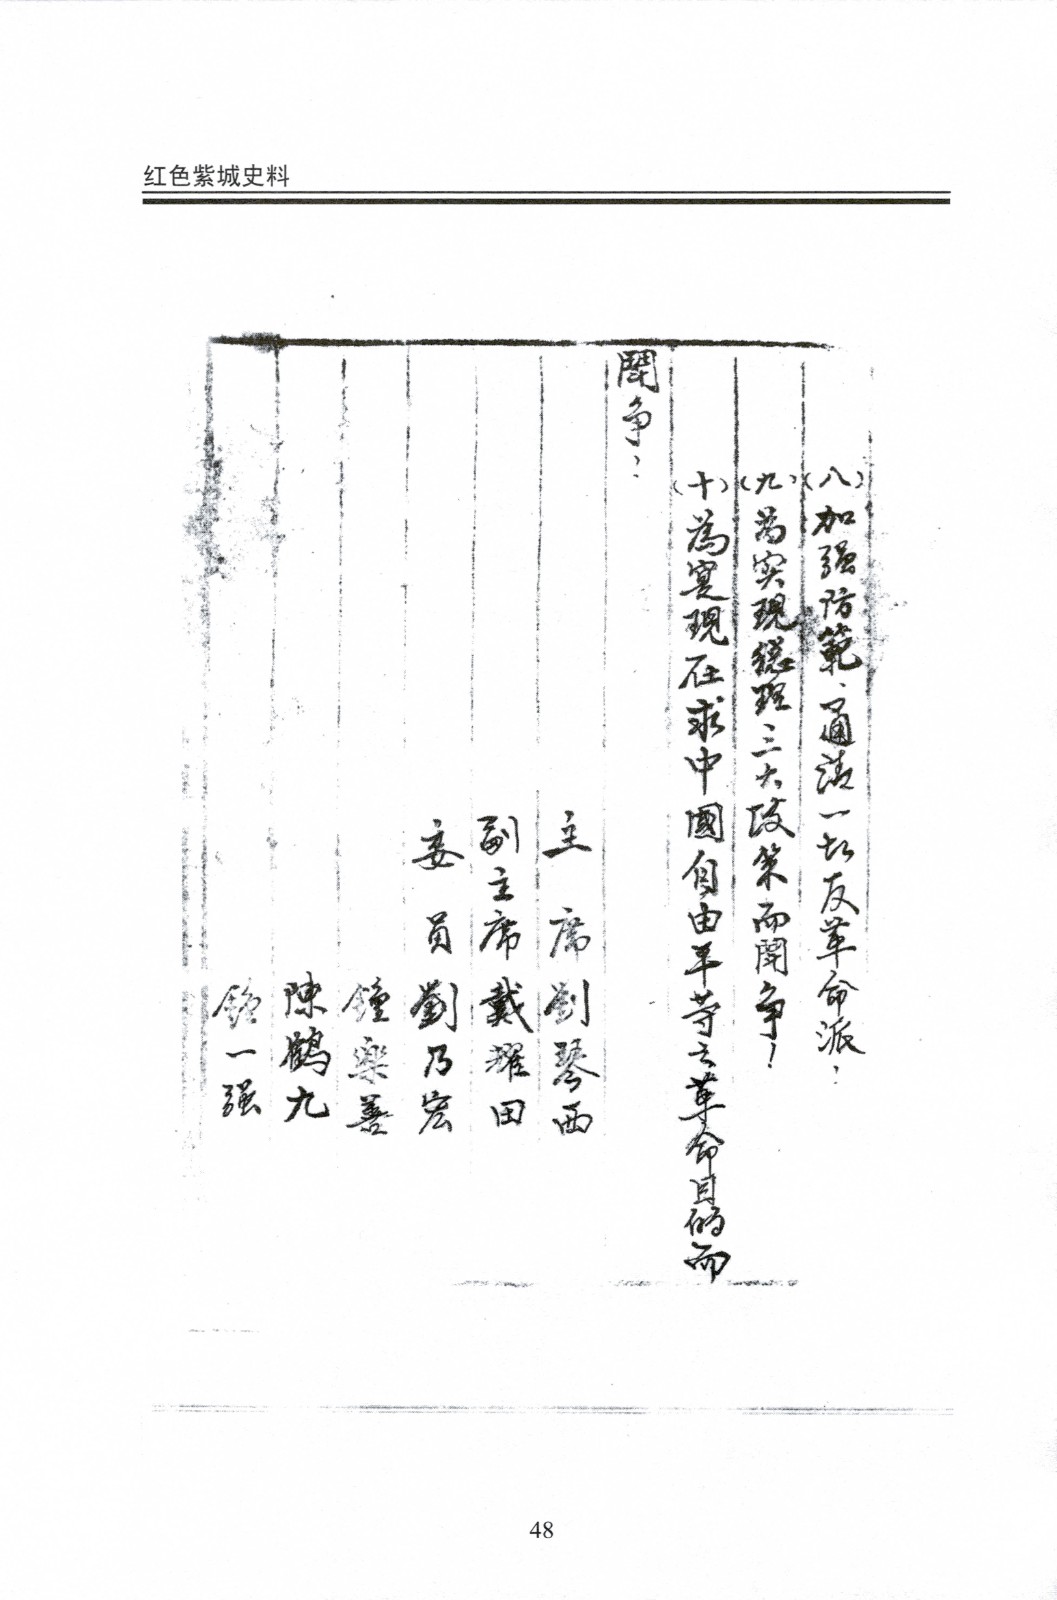 红色紫城史料
（八）加强防範、通清一切反革命派！
（九）為实現總理三大政策而鬪争！
（十）為寔現在求中國自由平等之革命目的而
鬪争！
主席劉琴西
副主席戴耀田
委員劉乃宏
鐘樂善
陳鶴九
鐘一强
48